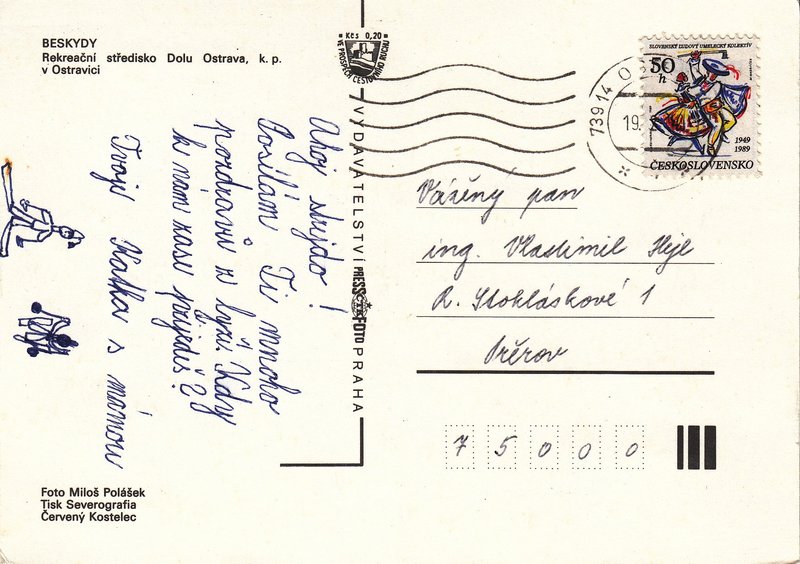 BESKYDY
Rekreační středisko Dolu Ostrava, k. p.
v Ostravici
Kčs 0,20
VE PROSPĚCH CESTOVNÍHO RUCHU
Ahoj strejdo!
Posílám Ti mnoho
pozdravů z lyží. Kdy
k nám zase přijedeš?
Tvoje Katka s mámou
VYDAVATELSTVÍ PRESSFOTO PRAHA
ČTK
739 14 O
19.
SLOVENSKÝ ĽUDOVÝ UMELECKÝ KOLEKTÍV
50 h
1949
1989
ČESKOSLOVENSKO
Vážený pan
ing. Vlastimil Hejl
R. Stokláskové 1
Přerov
75000
Foto Miloš Polášek
Tisk Severografia
Červený Kostelec